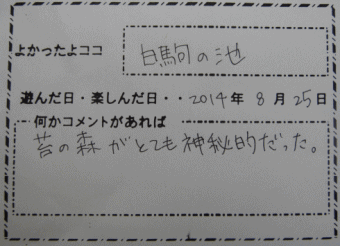 よかったよココ 白駒の池
遊んだ日・楽しんだ日・・2014年 8月 25日
何かコメントがあれば
苔の森がとても神秘的だった。